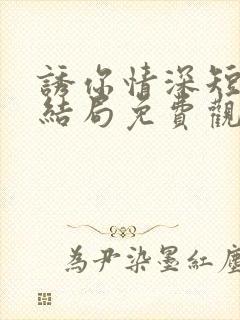 誘你情深短
結局免費觀
為尹染墨紅塵